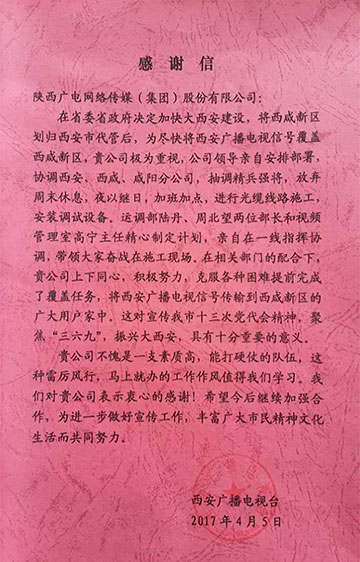 感谢信
陕西广电网络传媒（集团）股份有限公司：
在省委省政府决定加快大西安建设，将西咸新区
划归西安市代管后，为尽快将西安广播电视信号覆盖
西咸新区，贵公司极为重视，公司领导亲自安排部署，
协调西安、西咸、咸阳分公司，抽调精兵强将，放弃
周末休息，夜以继日，加班加点，进行光缆线路施工，
安装调试设备。运调部陆丹、周北望两位部长和视频
管理室高宁主任精心制定计划，亲自在一线指挥协
调，带领大家奋战在施工现场。在相关部门的配合下，
贵公司上下同心，积极努力，克服各种困难提前完成
了覆盖任务，将西安广播电视信号传输到西咸新区的
广大用户家中。这对宣传我市十三次党代会精神，聚
焦“三六九”，振兴大西安，具有十分重要的意义。
贵公司不愧是一支素质高，能打硬仗的队伍，这
种雷厉风行，马上就办的工作作风值得我们学习。我
们对贵公司表示衷心的感谢！希望今后继续加强合
作，为进一步做好宣传工作，丰富广大市民精神文化
生活而共同努力。
西安广播电视台
2017年4月5日